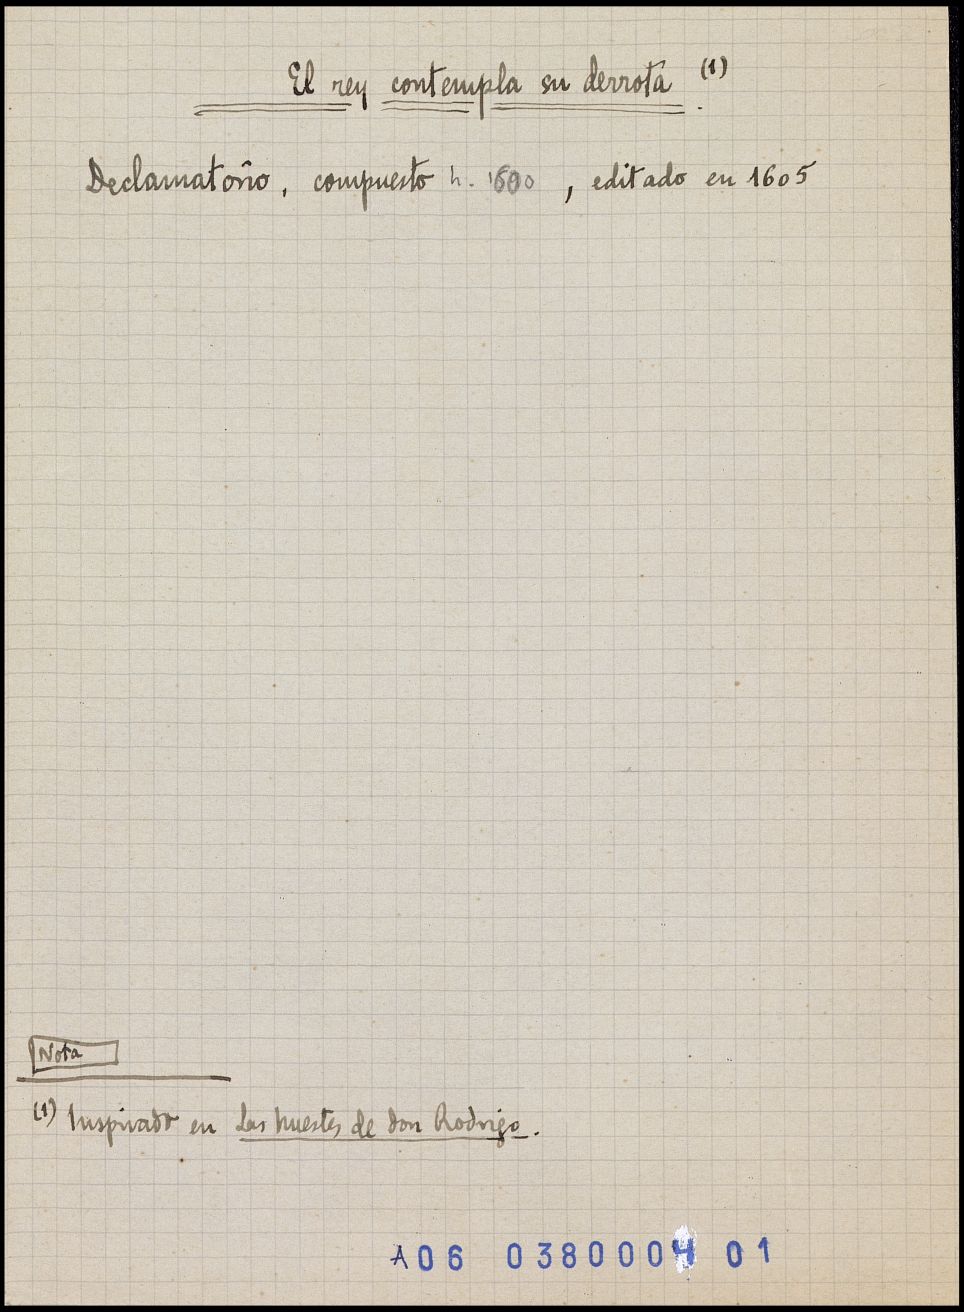 El rey contempla su derrota (1)
Declamatorio, compuesto h. 1600, editado en 1605
Nota
(1) Inspirado en Las huestes de don Rodrigo.
A06 0380004 01